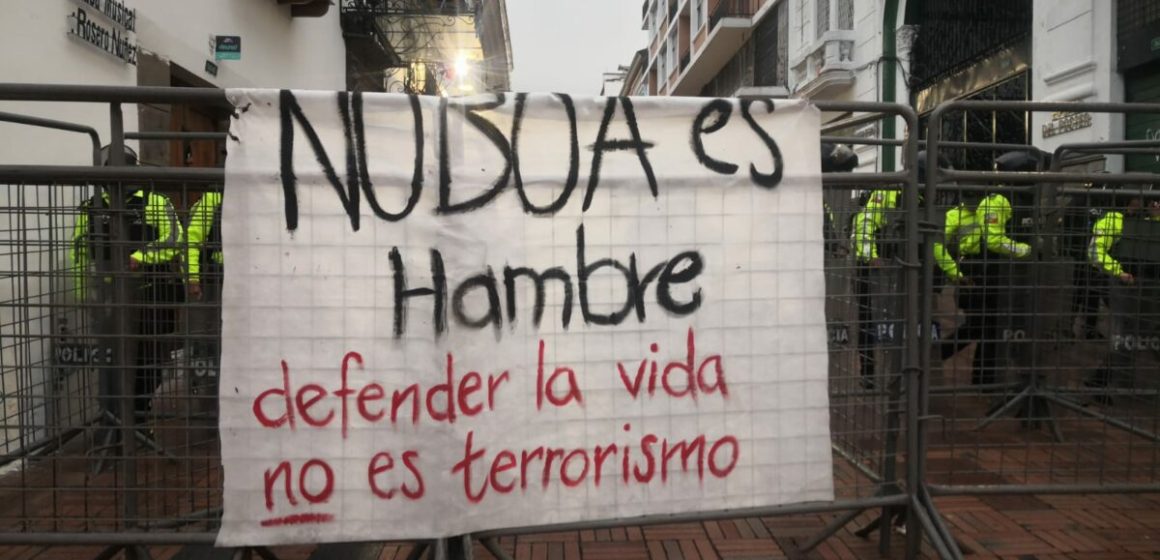 Musical
Rosero Nuñez
NUBOA es
Hambre
defender la vida
no es terrorismo
POLIC
POL
POLICIA
PO
POLIC